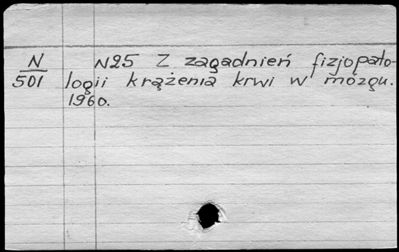 N N25 Z zagadnień fizjopato-
501 logii krążenia krwi w mózgu.
1960.